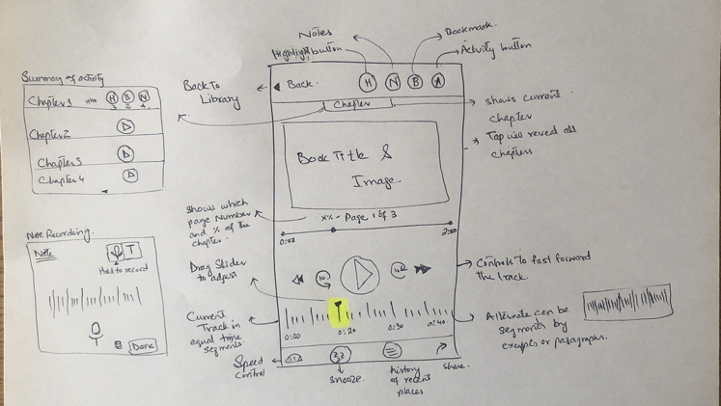 Summary of activity
Chapter 1
H B N
3 2 4
Chapter 2
Chapter 3
Chapter 4
Note Recording
Note
T
Hold to record
Done
Notes
Highlight button
Bookmark
Activity button
Back To
Library
Back
H N B A
Chapter
shows current
chapter
Tap will reveal all
chapters
Book Title &
Image
Shows which
page Number
and % of the
chapter
x% - Page 1 of 3
Drag Slider
to adjust
Controls to fast forward
the track.
Current
Track in
equal time
segments
0:00 0:20 0:30 0:40
Alternate can be
segments by
or paragraphs.
Speed
control
snooze
history of recent
places
share